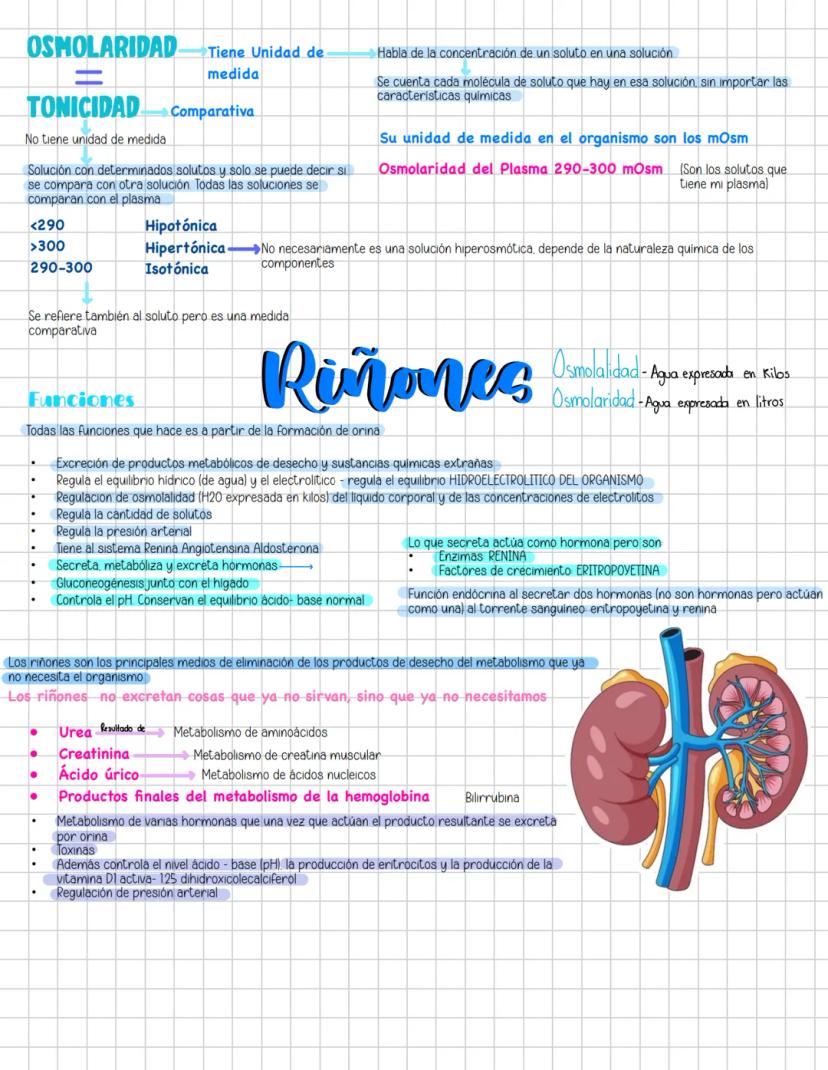 OSMOLARIDAD
=
TONICIDAD
Tiene Unidad de
medida
Habla de la concentración de un soluto en una solución
Se cuenta cada molécula de soluto que hay en esa solución, sin importar las
características químicas
Comparativa
No tiene unidad de medida
Su unidad de medida en el organismo son los mOsm
Solución con determinados solutos y solo se puede decir si
se compara con otra solución. Todas las soluciones se
comparan con el plasma
Osmolaridad del Plasma 290-300 mOsm
(Son los solutos que
tiene mi plasma)
<290 Hipotónica
>300 Hipertónica
290-300 Isotónica
No necesariamente es una solución hiperosmótica, depende de la naturaleza química de los
componentes
Se refiere también al soluto pero es una medida
comparativa
Riñones
Osmolalidad - Agua expresada en Kilos
Osmolaridad - Agua expresada en litros
Funciones
Todas las funciones que hace es a partir de la formación de orina
• Excreción de productos metabólicos de desecho y sustancias químicas extrañas
• Regula el equilibrio hídrico (de agua) y el electrolítico - regula el equilibrio HIDROELECTROLITICO DEL ORGANISMO
• Regulacion de osmolalidad (H20 expresada en kilos) del líquido corporal y de las concentraciones de electrolitos
• Regula la cantidad de solutos
• Regula la presión arterial
• Tiene al sistema Renina Angiotensina Aldosterona
• Secreta, metabóliza y excreta hormonas
• Gluconeogénesis junto con el hígado
• Controla el pH. Conservan el equilibrio ácido- base normal
Lo que secreta actúa como hormona pero son
• Enzimas RENINA
• Factores de crecimiento ERITROPOYETINA
Función endócrina al secretar dos hormonas (no son hormonas pero actúan
como una) al torrente sanguíneo eritropoyetina y renina
Los riñones son los principales medios de eliminación de los productos de desecho del metabolismo que ya
no necesita el organismo
Los riñones no excretan cosas que ya no sirvan, sino que ya no necesitamos
• Urea Resultado de Metabolismo de aminoácidos
• Creatinina Metabolismo de creatina muscular
• Ácido úrico Metabolismo de ácidos nucleicos
• Productos finales del metabolismo de la hemoglobina Bilirrubina
• Metabolismo de varias hormonas que una vez que actúan el producto resultante se excreta
por orina
• Toxinas
• Además controla el nivel ácido - base (pH), la producción de eritrocitos y la producción de la
vitamina D1 activa- 1,25 dihidroxicolecalciferol
• Regulación de presión arterial